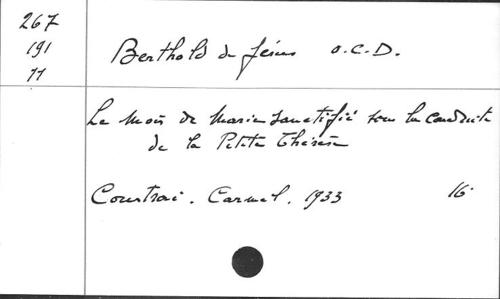 267
191
11
Berthold de Jésus O.C.D.
Le Mois de Marie sanctifié sous la conduite
de la Petite Thérèse
Courtrai. Carmel. 1933 16°